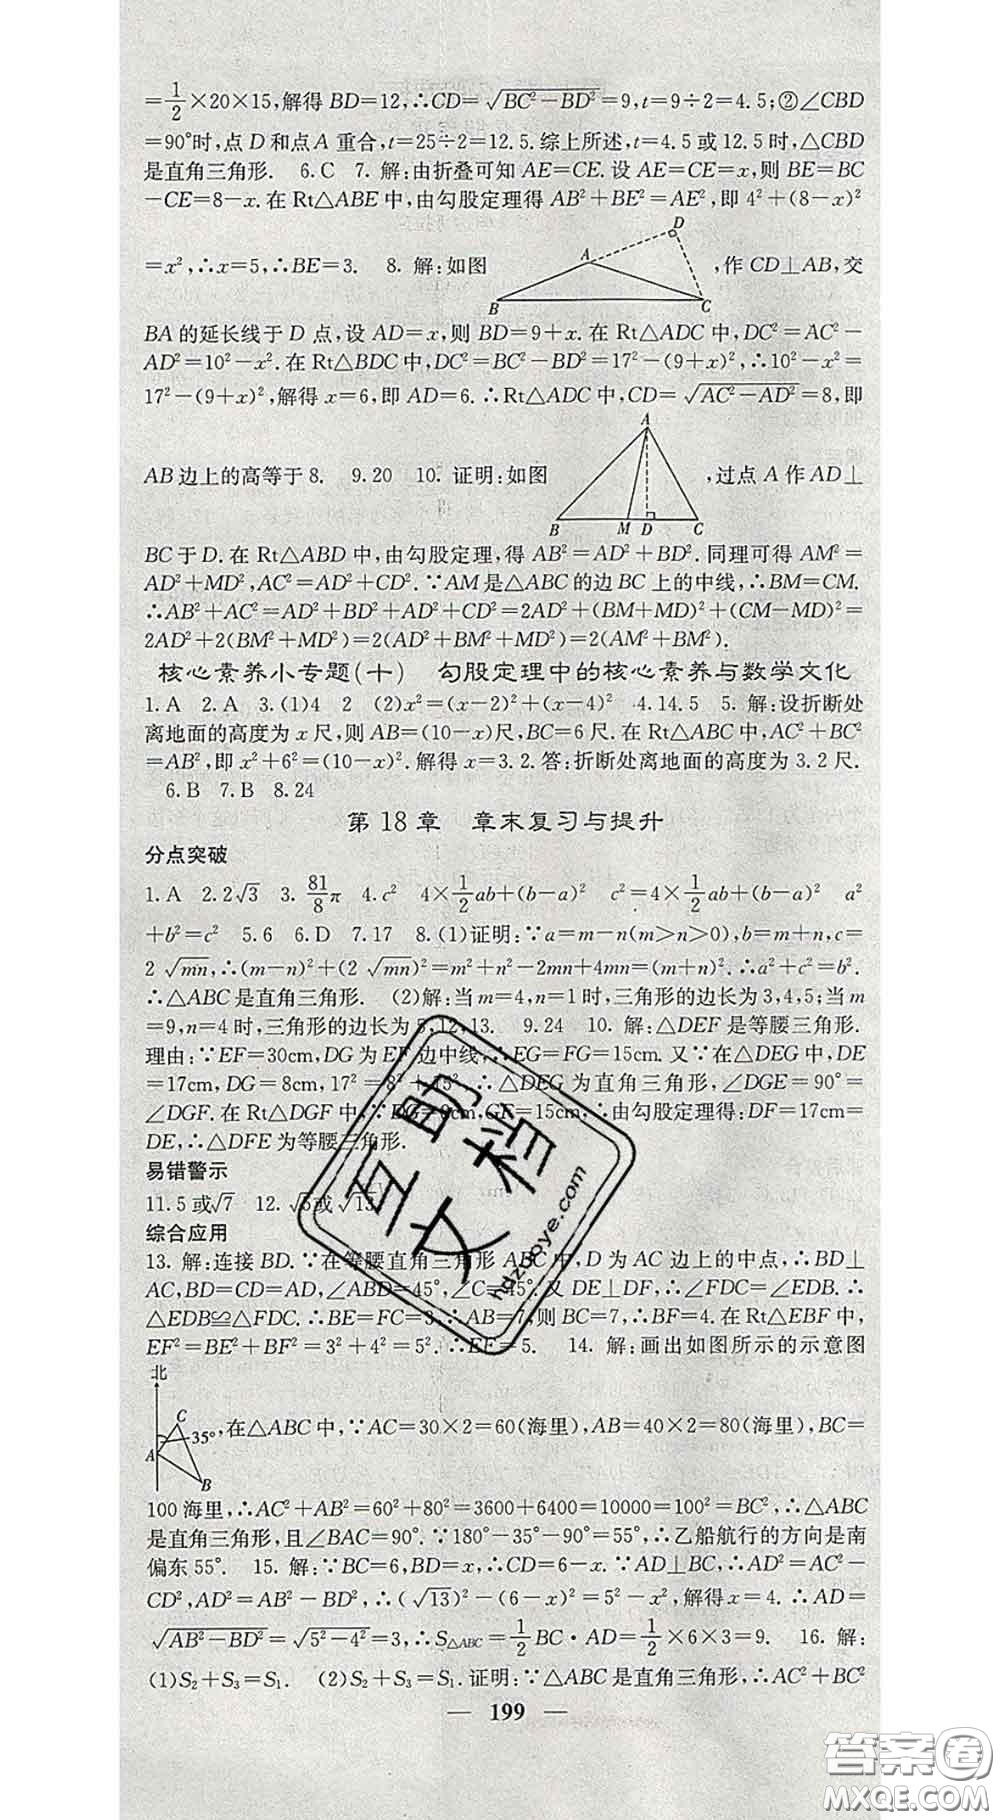 =1/2×20×15,解得 BD=12,∴CD=√(BC²-BD²)=9,t=9÷2=4.5;②∠CBD
=90°时,点 D 和点 A 重合,t=25÷2=12.5.综上所述,t=4.5 或 12.5 时,△CBD
是直角三角形. 6.C 7. 解:由折叠可知 AE=CE.设 AE=CE=x,则 BE=BC
-CE=8-x.在 Rt△ABE 中,由勾股定理得 AB²+BE²=AE²,即 4²+(8-x)²
=x²,∴x=5,∴BE=3. 8. 解:如图 A D B C ,作 CD⊥AB,交
BA 的延长线于 D 点,设 AD=x,则 BD=9+x.在 Rt△ADC 中,DC²=AC²-
AD²=10²-x².在 Rt△BDC 中,DC²=BC²-BD²=17²-(9+x)²,∴10²-x²=
17²-(9+x)²,解得 x=6,即 AD=6.∴Rt△ADC 中,CD=√(AC²-AD²)=8,即
AB 边上的高等于 8. 9.20 10. 证明:如图 A B M D C ,过点 A 作 AD⊥
BC 于 D.在 Rt△ABD 中,由勾股定理,得 AB²=AD²+BD².同理可得 AM²=
AD²+MD²,AC²=AD²+CD².∵AM 是△ABC 的边 BC 上的中线,∴BM=CM.
∴AB²+AC²=AD²+BD²+AD²+CD²=2AD²+(BM+MD)²+(CM-MD)²=
2AD²+2(BM²+MD²)=2(AD²+BM²+MD²)=2(AM²+BM²).
核心素养小专题(十) 勾股定理中的核心素养与数学文化
1.A 2.A 3.(1)4 2 (2)x²=(x-2)²+(x-4)² 4.14.5 5. 解:设折断处
离地面的高度为 x 尺,则 AB=(10-x)尺,BC=6 尺.在 Rt△ABC 中,AC²+BC²
=AB²,即 x²+6²=(10-x)².解得 x=3.2.答:折断处离地面的高度为 3.2 尺.
6.B 7.B 8.24
第 18 章 章末复习与提升
分点突破
1.A 2.2√3 3.81/8π 4.c² 4×1/2ab+(b-a)² c²=4×1/2ab+(b-a)² a²
+b²=c² 5.6 6.D 7.17 8.(1)证明:∵a=m-n(m>n>0),b=m+n,c=
2√mn,∴(m-n)²+(2√mn)²=m²+n²-2mn+4mn=(m+n)².∴a²+c²=b².
∴△ABC 是直角三角形. (2)解:当 m=4,n=1 时,三角形的边长为 3,4,5;当 m
=9,n=4 时,三角形的边长为 5,12,13. 9.24 10. 解:△DEF 是等腰三角形.
理由:∵EF=30cm,DG 为 EF 边中线,∴EG=FG=15cm.又∵在△DEG 中,DE
=17cm,DG=8cm,17²=8²+15²,∴△DEG 为直角三角形,∠DGE=90°=
∠DGF.在 Rt△DGF 中,∵DG=8cm,GF=15cm,∴由勾股定理得:DF=17cm=
DE,∴△DFE 为等腰三角形.
易错警示
11.5 或√7 12.√5或√13
综合应用
13. 解:连接 BD.∵在等腰直角三角形 ABC 中,D 为 AC 边上的中点,∴BD⊥
AC,BD=CD=AD,∠ABD=45°,∠C=45°.又 DE⊥DF,∴∠FDC=∠EDB.∴
△EDB≌△FDC.∴BE=FC=3.∴AB=7,则 BC=7,∴BF=4.在 Rt△EBF 中,
EF²=BE²+BF²=3²+4²=5².∴EF=5. 14. 解:画出如图所示的示意图
北 C 35° A B ,在△ABC 中,∵AC=30×2=60(海里),AB=40×2=80(海里),BC=
100 海里,∴AC²+AB²=60²+80²=3600+6400=10000=100²=BC²,∴△ABC
是直角三角形,且∠BAC=90°.∵180°-35°-90°=55°,∴乙船航行的方向是南
偏东 55°. 15. 解:∵BC=6,BD=x,∴CD=6-x.∵AD⊥BC,∴AD²=AC²-
CD²,AD²=AB²-BD²,∴(√13)²-(6-x)²=5²-x²,解得 x=4.∴AD=
√(AB²-BD²)=√(5²-4²)=3,∴S△ABC=1/2BC·AD=1/2×6×3=9. 16. 解:
(1)S₂+S₃=S₁. (2)S₂+S₃=S₁.证明:∵△ABC 是直角三角形,∴AC²+BC²
— 199 —
互助文档
hdzuoye.com
答案圈
MXQE.COM